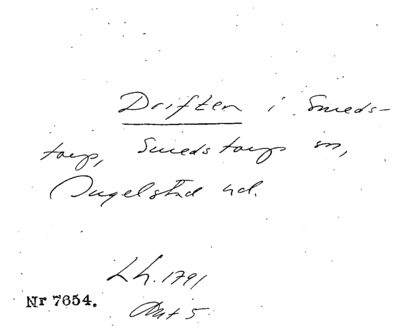 Driften i Smeds-
torp, Smedstorps sn,
Ingelstad hd.
Lh. 1791
Akt 5
Nr 7654.